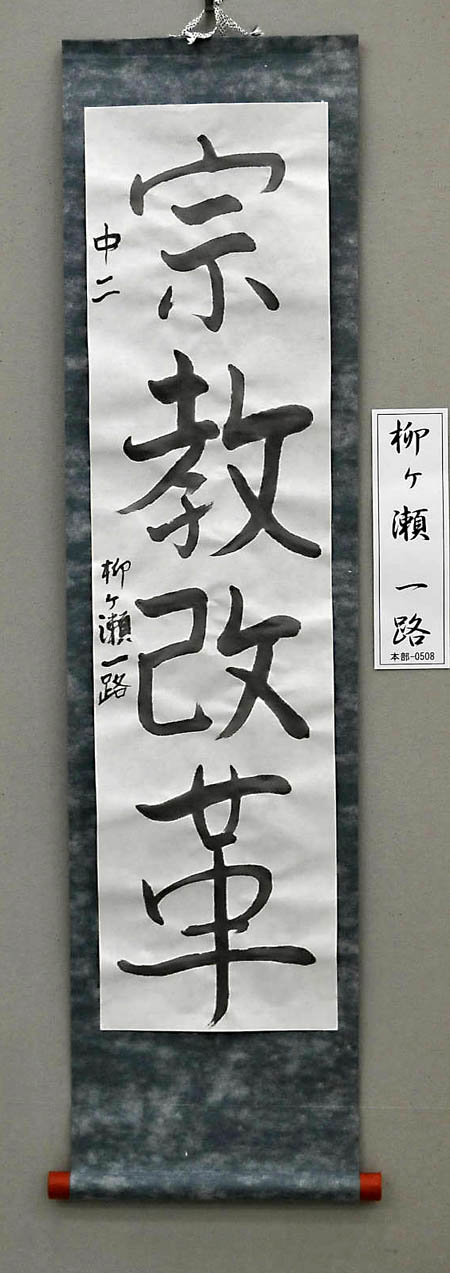 宗教改革
中二
柳ヶ瀬一路
柳ヶ瀬 一路
本部-0508